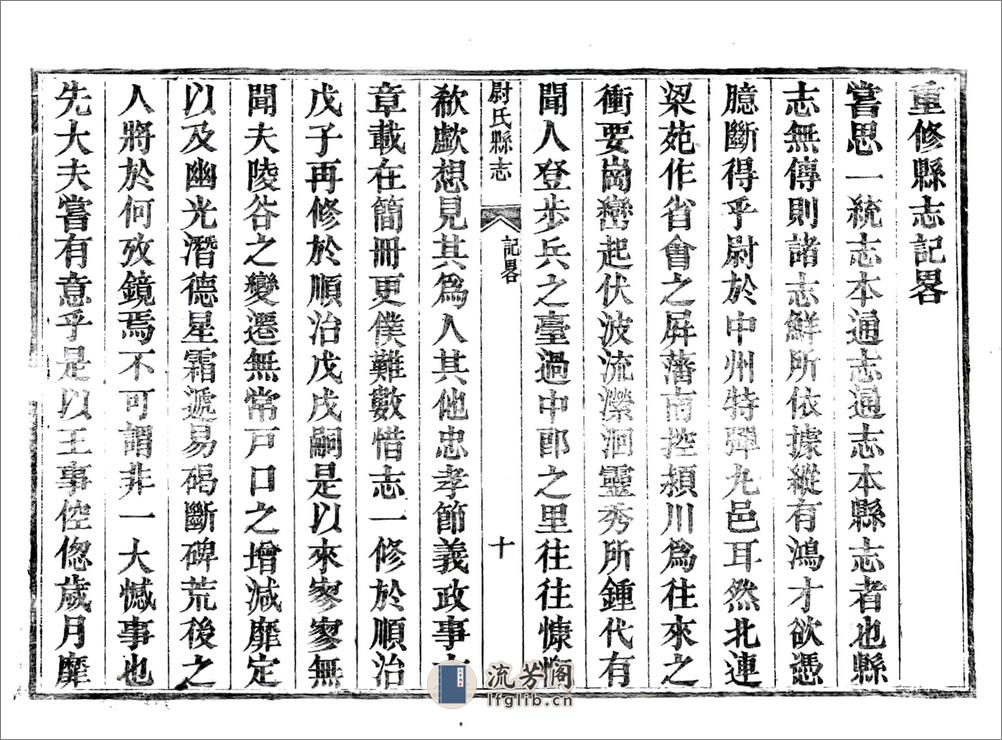 重修縣志記畧
嘗思一統志本通志通志本縣志者也縣
志無傳則諸志鮮所依據縱有鴻才欲憑
臆斷得乎尉於中州特彈丸邑耳然北連
梁苑作省會之屏藩南控潁川為往來之
衝要崗巒起伏波流瀠洄靈秀所鍾代有
聞人登步兵之臺過中郎之里往往慷慨
尉氏縣志
記畧
十
欷歔想見其為人其他忠孝節義政事
章載在簡冊更僕難數惜志一修於順治
戊子再修於順治戊戌嗣是以來寥寥無
聞夫陵谷之變遷無常戸口之增減靡定
以及幽光潛德星霜遞易碣斷碑荒後之
人將於何攷鏡焉不可謂非一大憾事也
先大夫嘗有意乎是以王事倥偬歲月靡
流芳阁
lfglib.cn